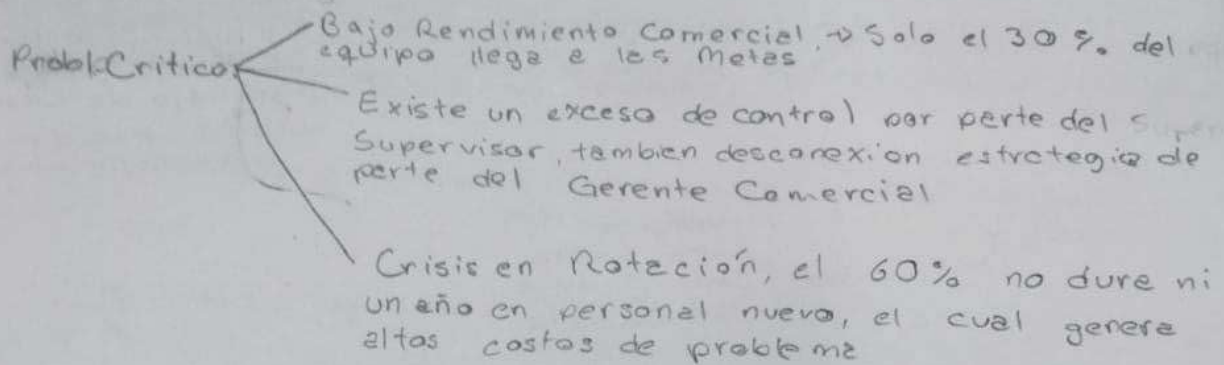 Bajo Rendimiento Comercial → Solo el 30% del
equipo llega a las Metas
Probl. Criticos
Existe un exceso de control por parte del
Supervisor, tambien desconexion estrategia de
parte del Gerente Comercial
Crisis en Rotación, el 60% no dura ni
un año en personal nuevo, el cual genera
altos costos de problema